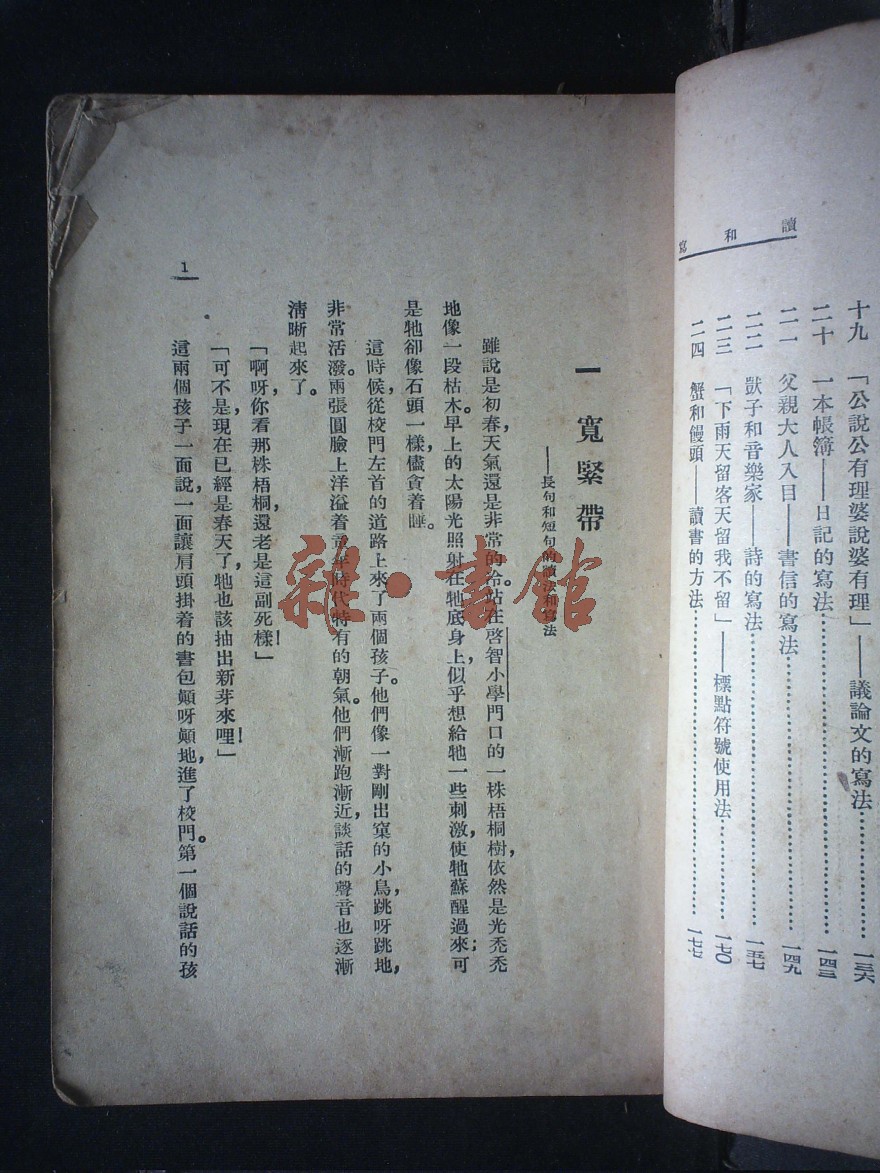 讀和寫
十九 「公說公有理婆說婆有理」——議論文的寫法……一三六
二十 一本帳簿——日記的寫法……一四三
二一 父親大人入目——書信的寫法……一四九
二二 獃子和音樂家——詩的寫法……一五七
二三 「下雨天留客天留我不留」——標點符號使用法……一七〇
二四 蟹和饅頭——讀書的方法……一七七
一 寬緊帶
——長句和短句的讀法和寫法
雖說是初春,天氣還是非常的冷。站在啓智小學門口的一株梧桐樹,依然是光禿禿
地像一段枯木。早上的太陽光照射在牠底身上,似乎想給牠一些刺激,使牠蘇醒過來;可
是牠卻像石頭一樣,儘貪着睡。
這時候,從校門左首的道路上來了兩個孩子。他們像一對剛出窠的小鳥,跳呀跳地,
非常活潑。兩張圓臉上洋溢着童年時代特有的朝氣。他們漸跑漸近,談話的聲音也逐漸
清晰起來了。
「啊呀,你看那株梧桐,還老是這副死樣!」
「可不是,現在已經是春天了,牠也該抽出新芽來哩!」
這兩個孩子一面說,一面讓肩頭掛着的書包顛呀顛地,進了校門。第一個說話的孩
1
雜·書館